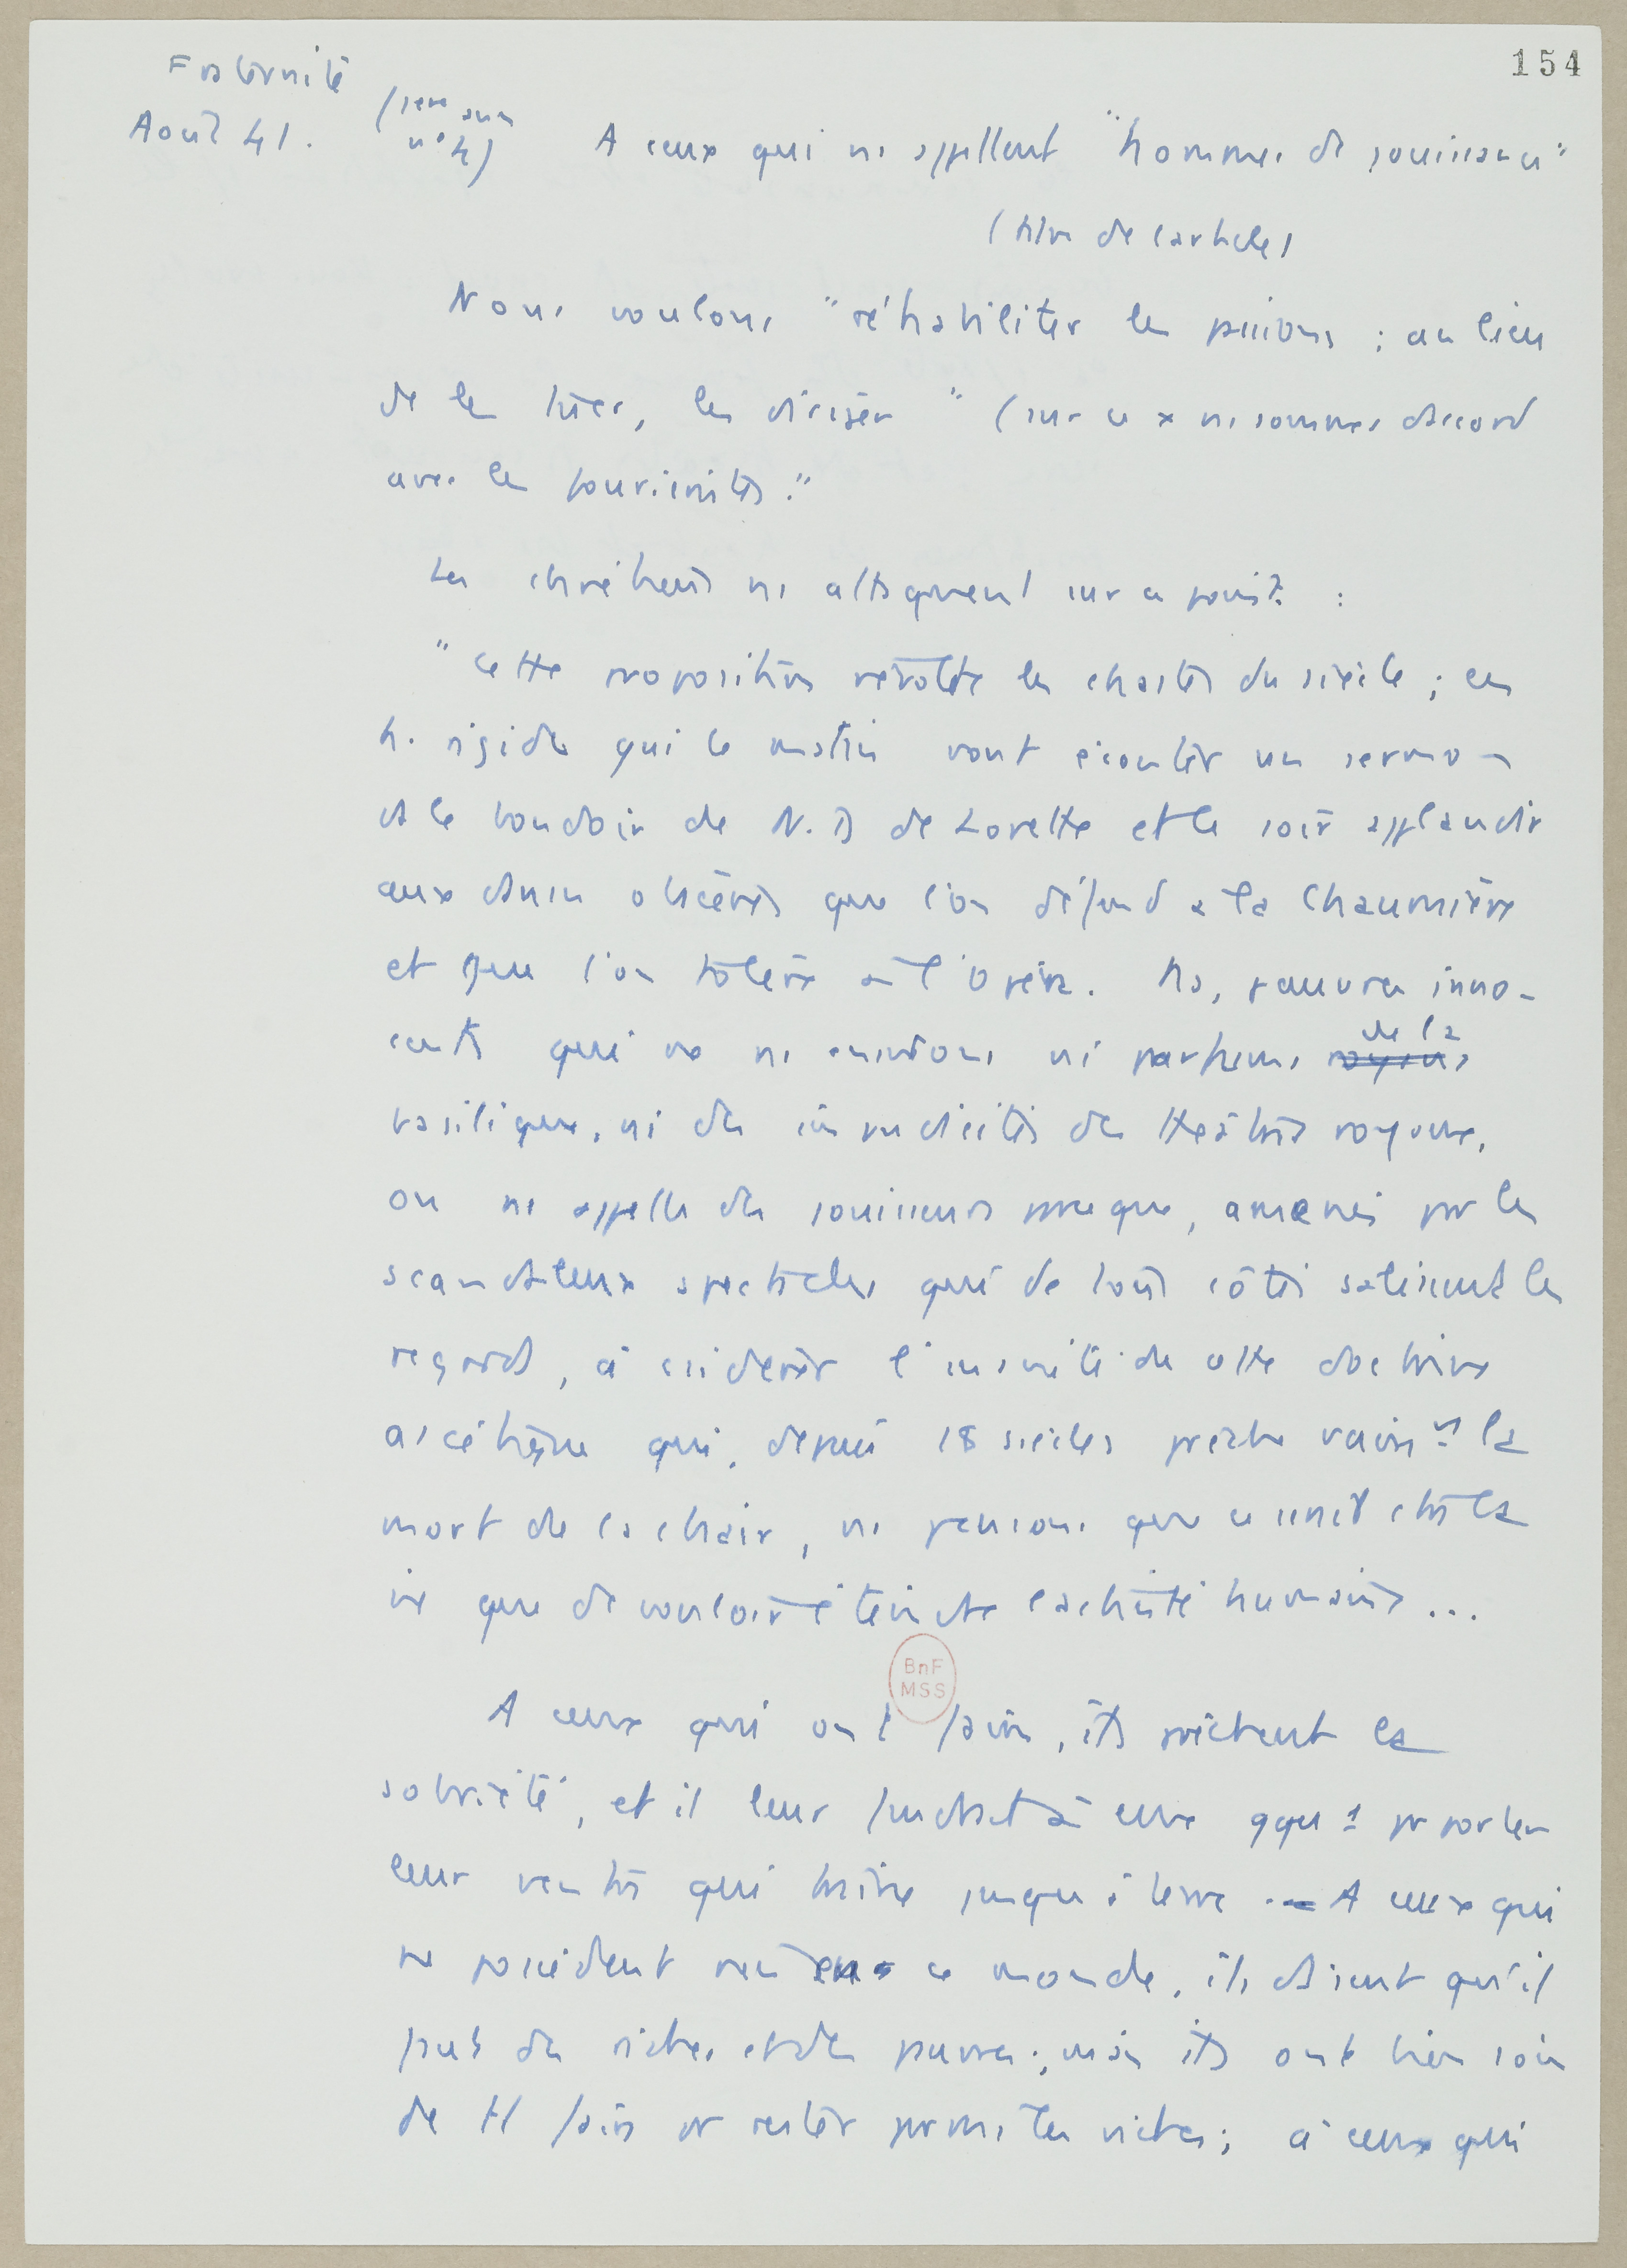 154
Fraternité
Août 41. (1ere année
n° 4)
A ceux qui ns appellent "hommes de jouissance"
(titre de l'article)
Nous voulons "réhabiliter les passions ; au lieu
de les tuer, les diriger" (sur ce x ns sommes d'accord
avec les fourieristes."
Les chrétiens ns attaquent sur ce point :
"Cette proposition révolte les chastes du siècle ; ces
h. rigides qui le matin vont écouter un sermon
ds le boudoir de N. D de Lorette et le soir applaudir
aux danses obscènes que l'on défend à la Chaumière
et que l'on tolère à l'Opéra. Ns, pauvres inno-
cents qui ne ns enivrons ni parfums de la
basilique, ni des impudicités des théâtres royaux,
on ns appelle des jouisseurs parce que, amenés par les
scandaleux spectacles qui de tous côtés salissent les
regards, à considérer l'inanité de cette doctrine
ascétique qui, depuis 18 siècles prêche vaint la
mort de la chair, ns pensons que ce serait être la
vie que de vouloir éteindre l'activité humaine...
BnF
MSS
A ceux qui ont faim, ils prêchent la
sobriété, et il leur faudrait à eux qqu 1 pr porter
leur ventre qui traîne jusqu'à terre. - A ceux qui
ne possèdent rien en ce monde, ils disent qu'il
faut des riches et des pauvres ; mais ils ont bien soin
de tt faire pr rester parmi les riches ; à ceux qui